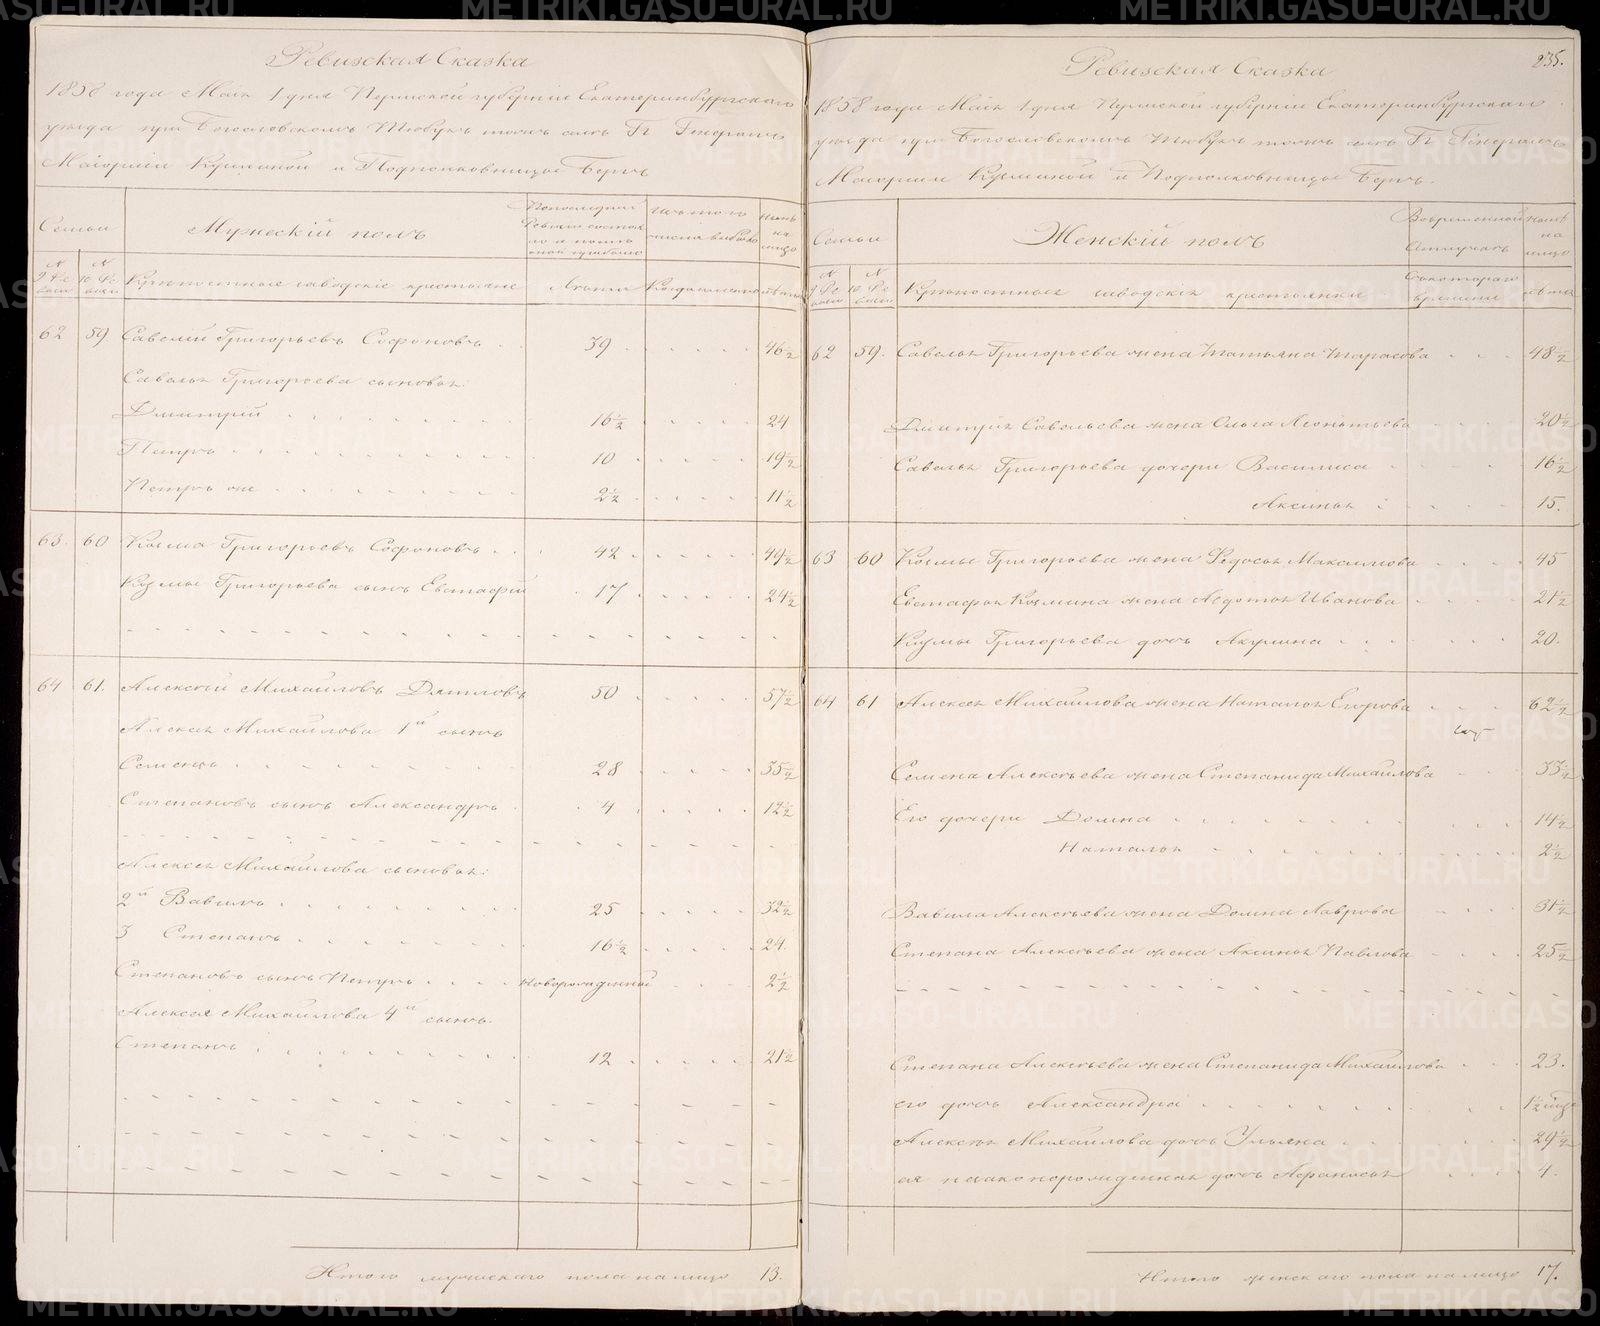 Ревизская Сказка
1858 года Мая 1 дня Пермской губернiи Екатеринбургскаго
уезда при Богословскомъ Тюбукъ тожъ селе Гг Генералъ
Маiорши и Подполковницы Бергъ
Семьи
Мужескiй полъ
По последней Ревизiи состояло и после оной прибыло
Изъ того числа выбыло
Ныне на лицо
N 9 Ревизiи
N 10 Ревизiи
Крепостные заводскiе крестьяне
Лета
Когда именно
лета
62 59 Савелiй Григорьевъ Софоновъ 39 46½
Савелья Григорьева сыновья:
Дмитрiй 16½ 24
Петръ 10 19½
Петръ же 2½ 11½
63 60 Козма Григорьевъ Софоновъ 42 49½
Кузмы Григорьева сынъ Евстафiй 17 24½
64 61. Алексей Михайловъ Дятловъ 50 57½
Алексея Михайлова 1й сынъ
Семенъ 28 35½
Степановъ сынъ Александръ 4 12½
Алексея Михайлова сыновья:
2й Вавилъ 25 32½
3 Степанъ 16½ 24.
Степановъ сынъ Петръ новорожденной 2½
Алексея Михайлова 4й сынъ
Степанъ 12 21½
Итого мужескаго пола на лицо 13.
235.
Ревизская Сказка
1858 года Мая 1 дня Пермской губернiи Екатеринбургскаго
уезда при Богословскомъ Тюбукъ тожъ селе Гг Генералъ
Маiорши и Подполковницы Бергъ.
Семьи
Женскiй полъ
Во временной отлучке
Ныне на лицо
N 9 Ревизiи
N 10 Ревизiи
Крепостныя заводскiя крестьянки
Съ котораго времени
лета
62 59. Савелья Григорьева жена Татьяна Тарасова 48½
Дмитрiя Савельева жена Ольга Леонтьева 20½
Савелья Григорьева дочери Василиса 16½
Аксинья 15.
63 60 Козмы Григорьева жена Федосья Максимова 45
Евстафья Козмина жена Авдотья Иванова 21½
Кузмы Григорьева дочь Акулина 20.
64 61 Алексея Михайлова жена Наталья Егорова 62½
Семена Алексеева жена Степанида Михайлова 33½
Его дочери Домна 14½
Наталья 2½
Вавила Алексеева жена Домна Лаврова 31½
Степана Алексеева жена Аксинья Павлова 25½
Степана Алексеева жена Степанида Михайлова 23.
его дочь Александра 1½
Алексея Михайлова дочь Ульяна 29½
ея незаконорожденная дочь Афанасья 4.
Итого женскаго пола на лицо 17.
METRIKI.GASO-URAL.RU